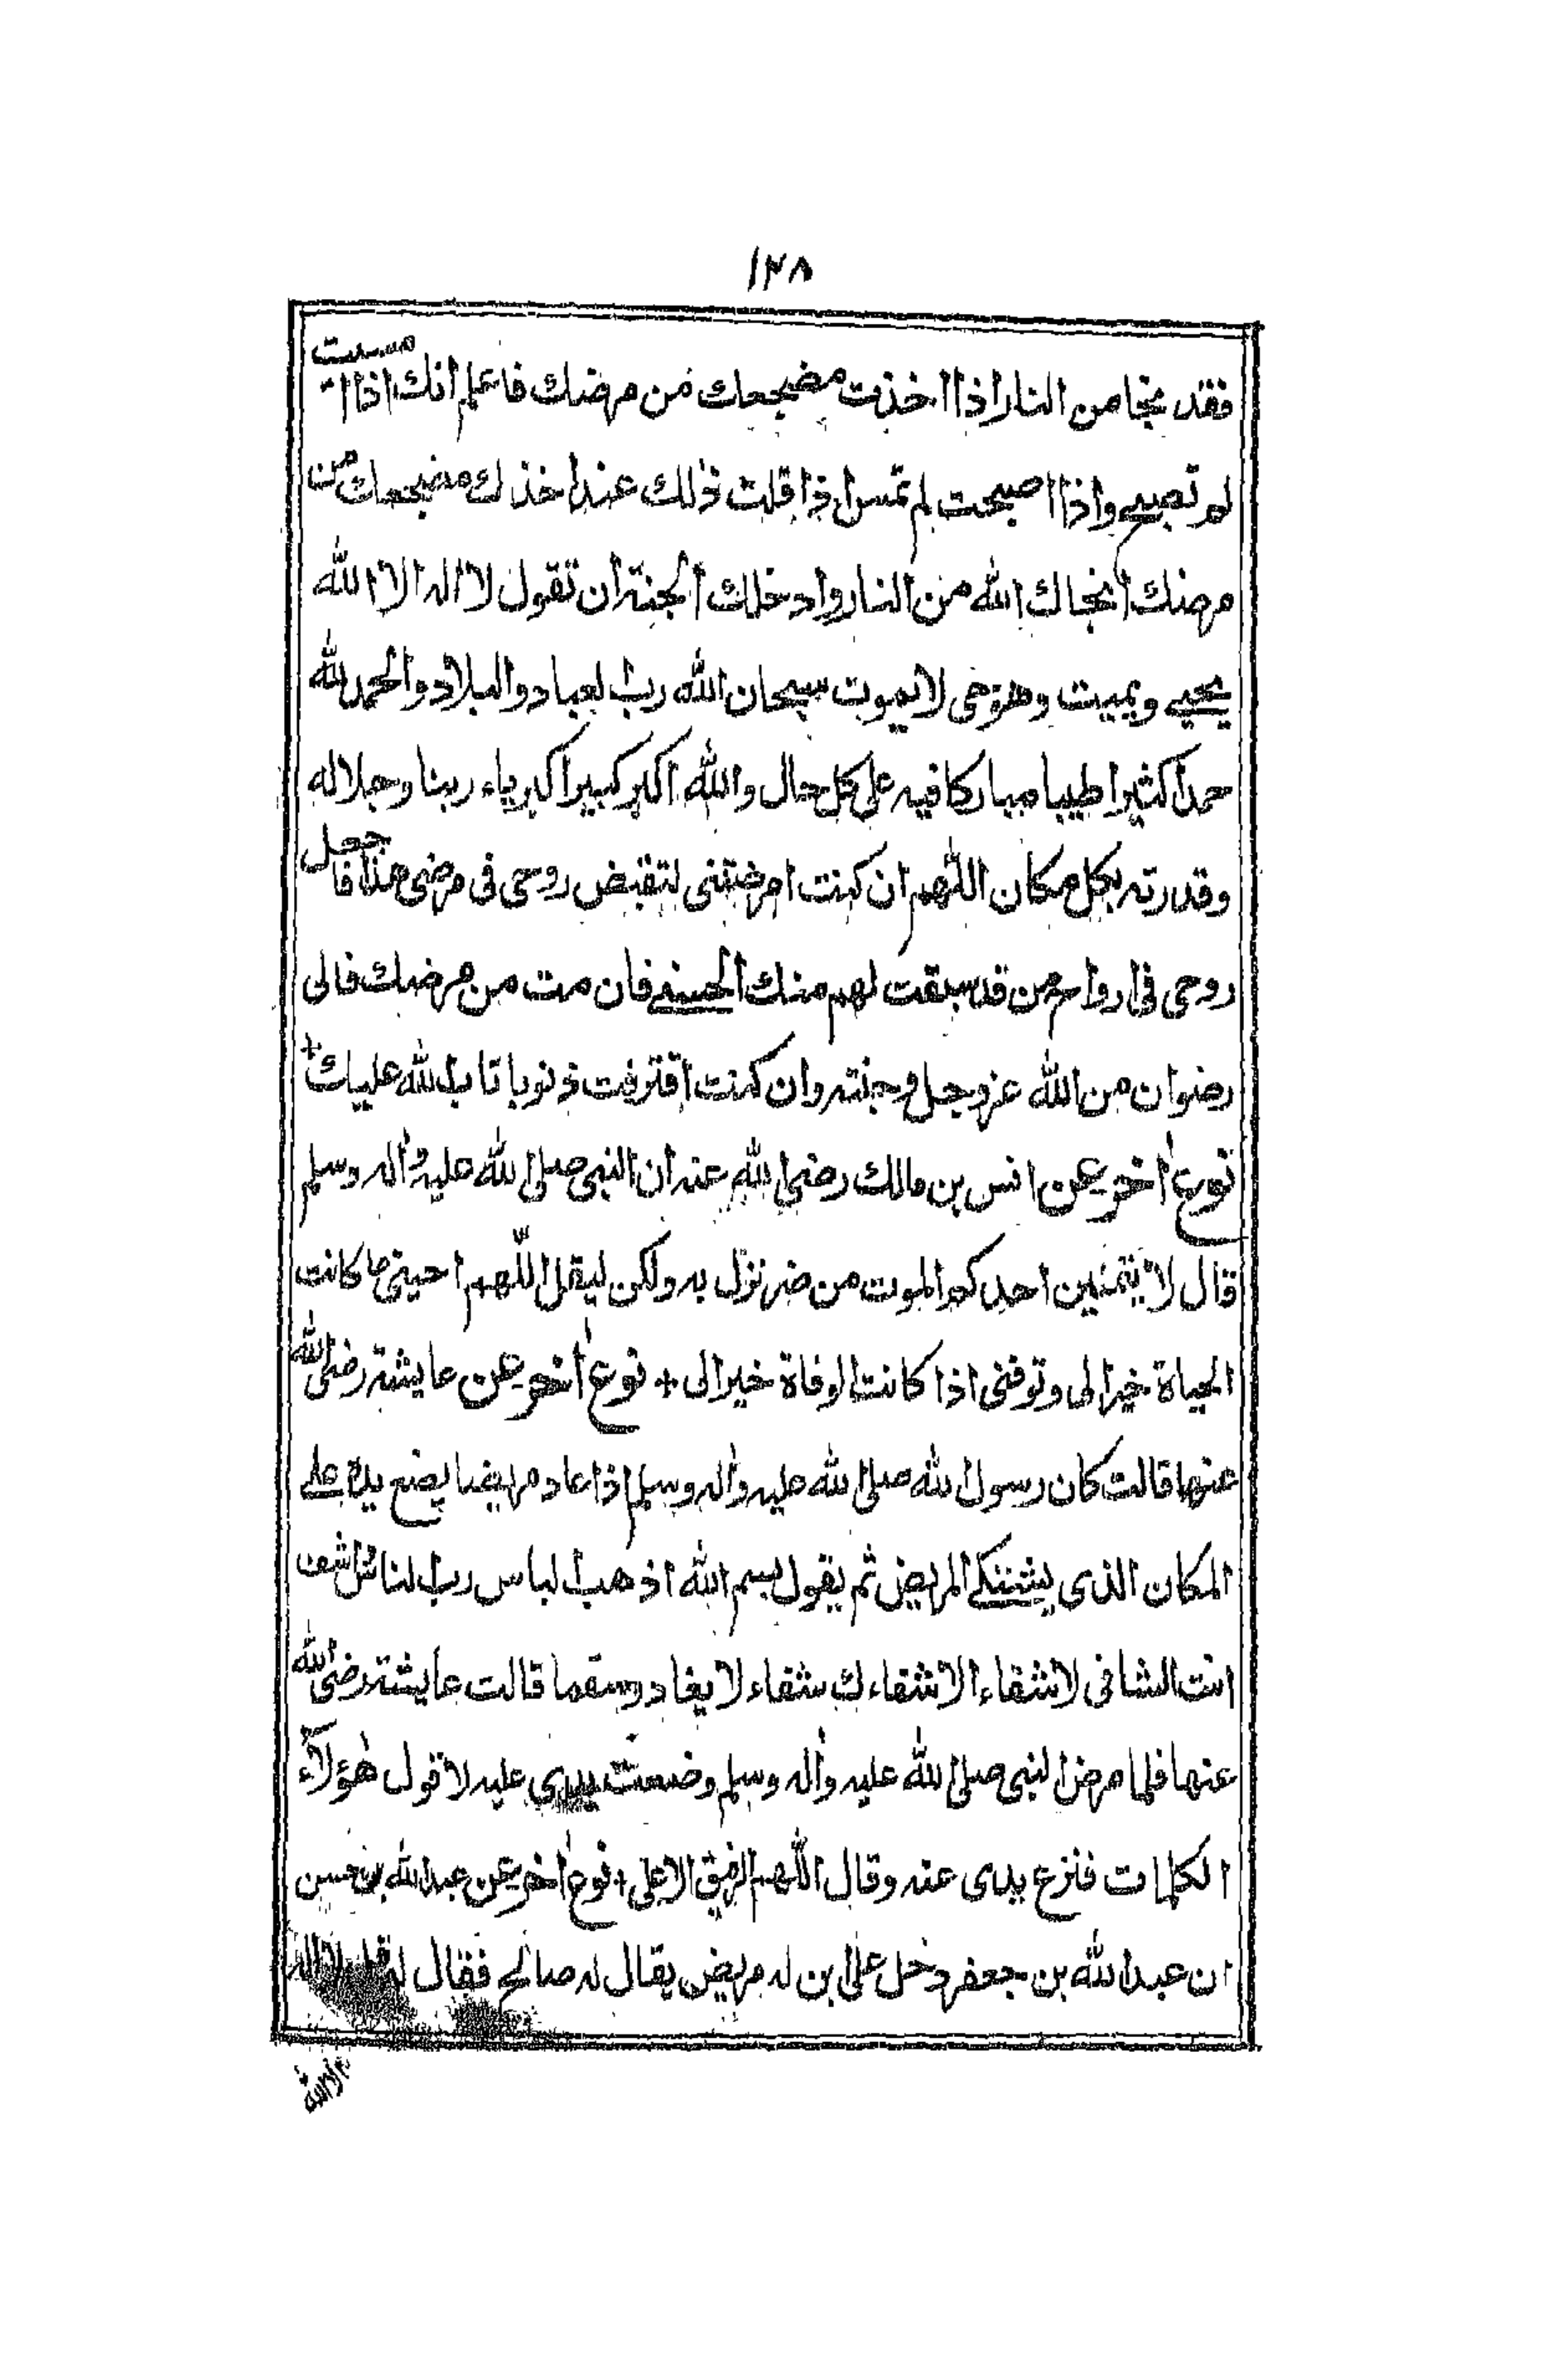 ١٢٨
فقد نجا من النار اذا اخذت مضجعك من مرضك فاعلم انك اذا امسيت
لم تصبح واذا اصبحت لم تمس اذا قلت ذلك عند اخذك مضجعك من
مرضك انجاك الله من النار وادخلك الجنة ان تقول لا اله الا الله
يحيى ويميت وهو حى لا يموت سبحان الله رب العباد والبلاد والحمد لله
حمدا كثيرا طيبا مباركا فيه على كل حال والله اكبر كبيرا كبرياء ربنا وجلاله
وقدرته بكل مكان اللهم ان كنت امرضتنى لتقبض روحى فى مرضى هذا فاجعل
روحى فى ارواح من قد سبقت لهم منك الحسنى فان مت من مرضك فالى
رضوان من الله عز وجل وجنته وان كنت اقترفت ذنوبا تاب الله عليك +
نوع اخر عن انس بن مالك رضى الله عنه ان النبى صلى الله عليه واله وسلم
قال لا يتمنين احدكم الموت من ضر نزل به ولكن ليقل اللهم احينى ما كانت
الحياة خيرا لى وتوفنى اذا كانت الوفاة خيرا لى + نوع اخر عن عايشة رضى الله
عنها قالت كان رسول الله صلى الله عليه واله وسلم اذا عاد مريضا يضع يده على
المكان الذى يشتكى المريض ثم يقول بسم الله اذهب الباس رب الناس اشف
انت الشافى لا شفاء الا شفاءك شفاء لا يغادر سقما قالت عايشة رضى الله
عنها فلما مرض النبى صلى الله عليه واله وسلم وضعت يدى عليه لاقول هؤلاء
الكلمات فنزع يدى عنه وقال اللهم الرفيق الاعلى + نوع اخر عن عبد الله بن حسن
ان عبد الله بن جعفر دخل على ابن له مريض يقال له صالح فقال له قل لا اله